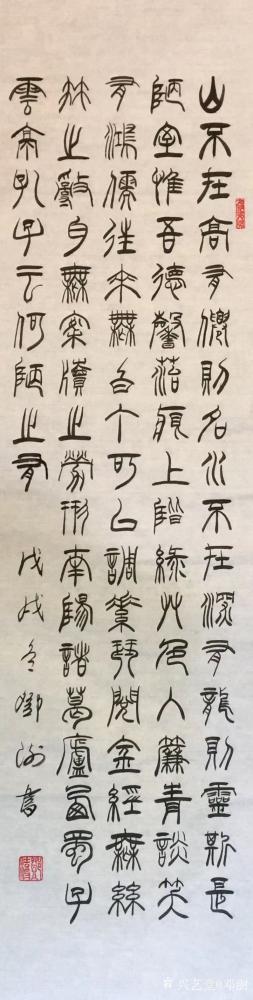 山不在高有僊則名水不在深有龍則靈斯是
陋室惟吾德馨苔痕上階綠艸色入簾青談笑
有鴻儒往來無白丁可以調素琴閱金經無絲
竹之亂耳無案牘之勞形南陽諸葛廬西蜀子
雲亭孔子云何陋之有
戊戌冬鄧書